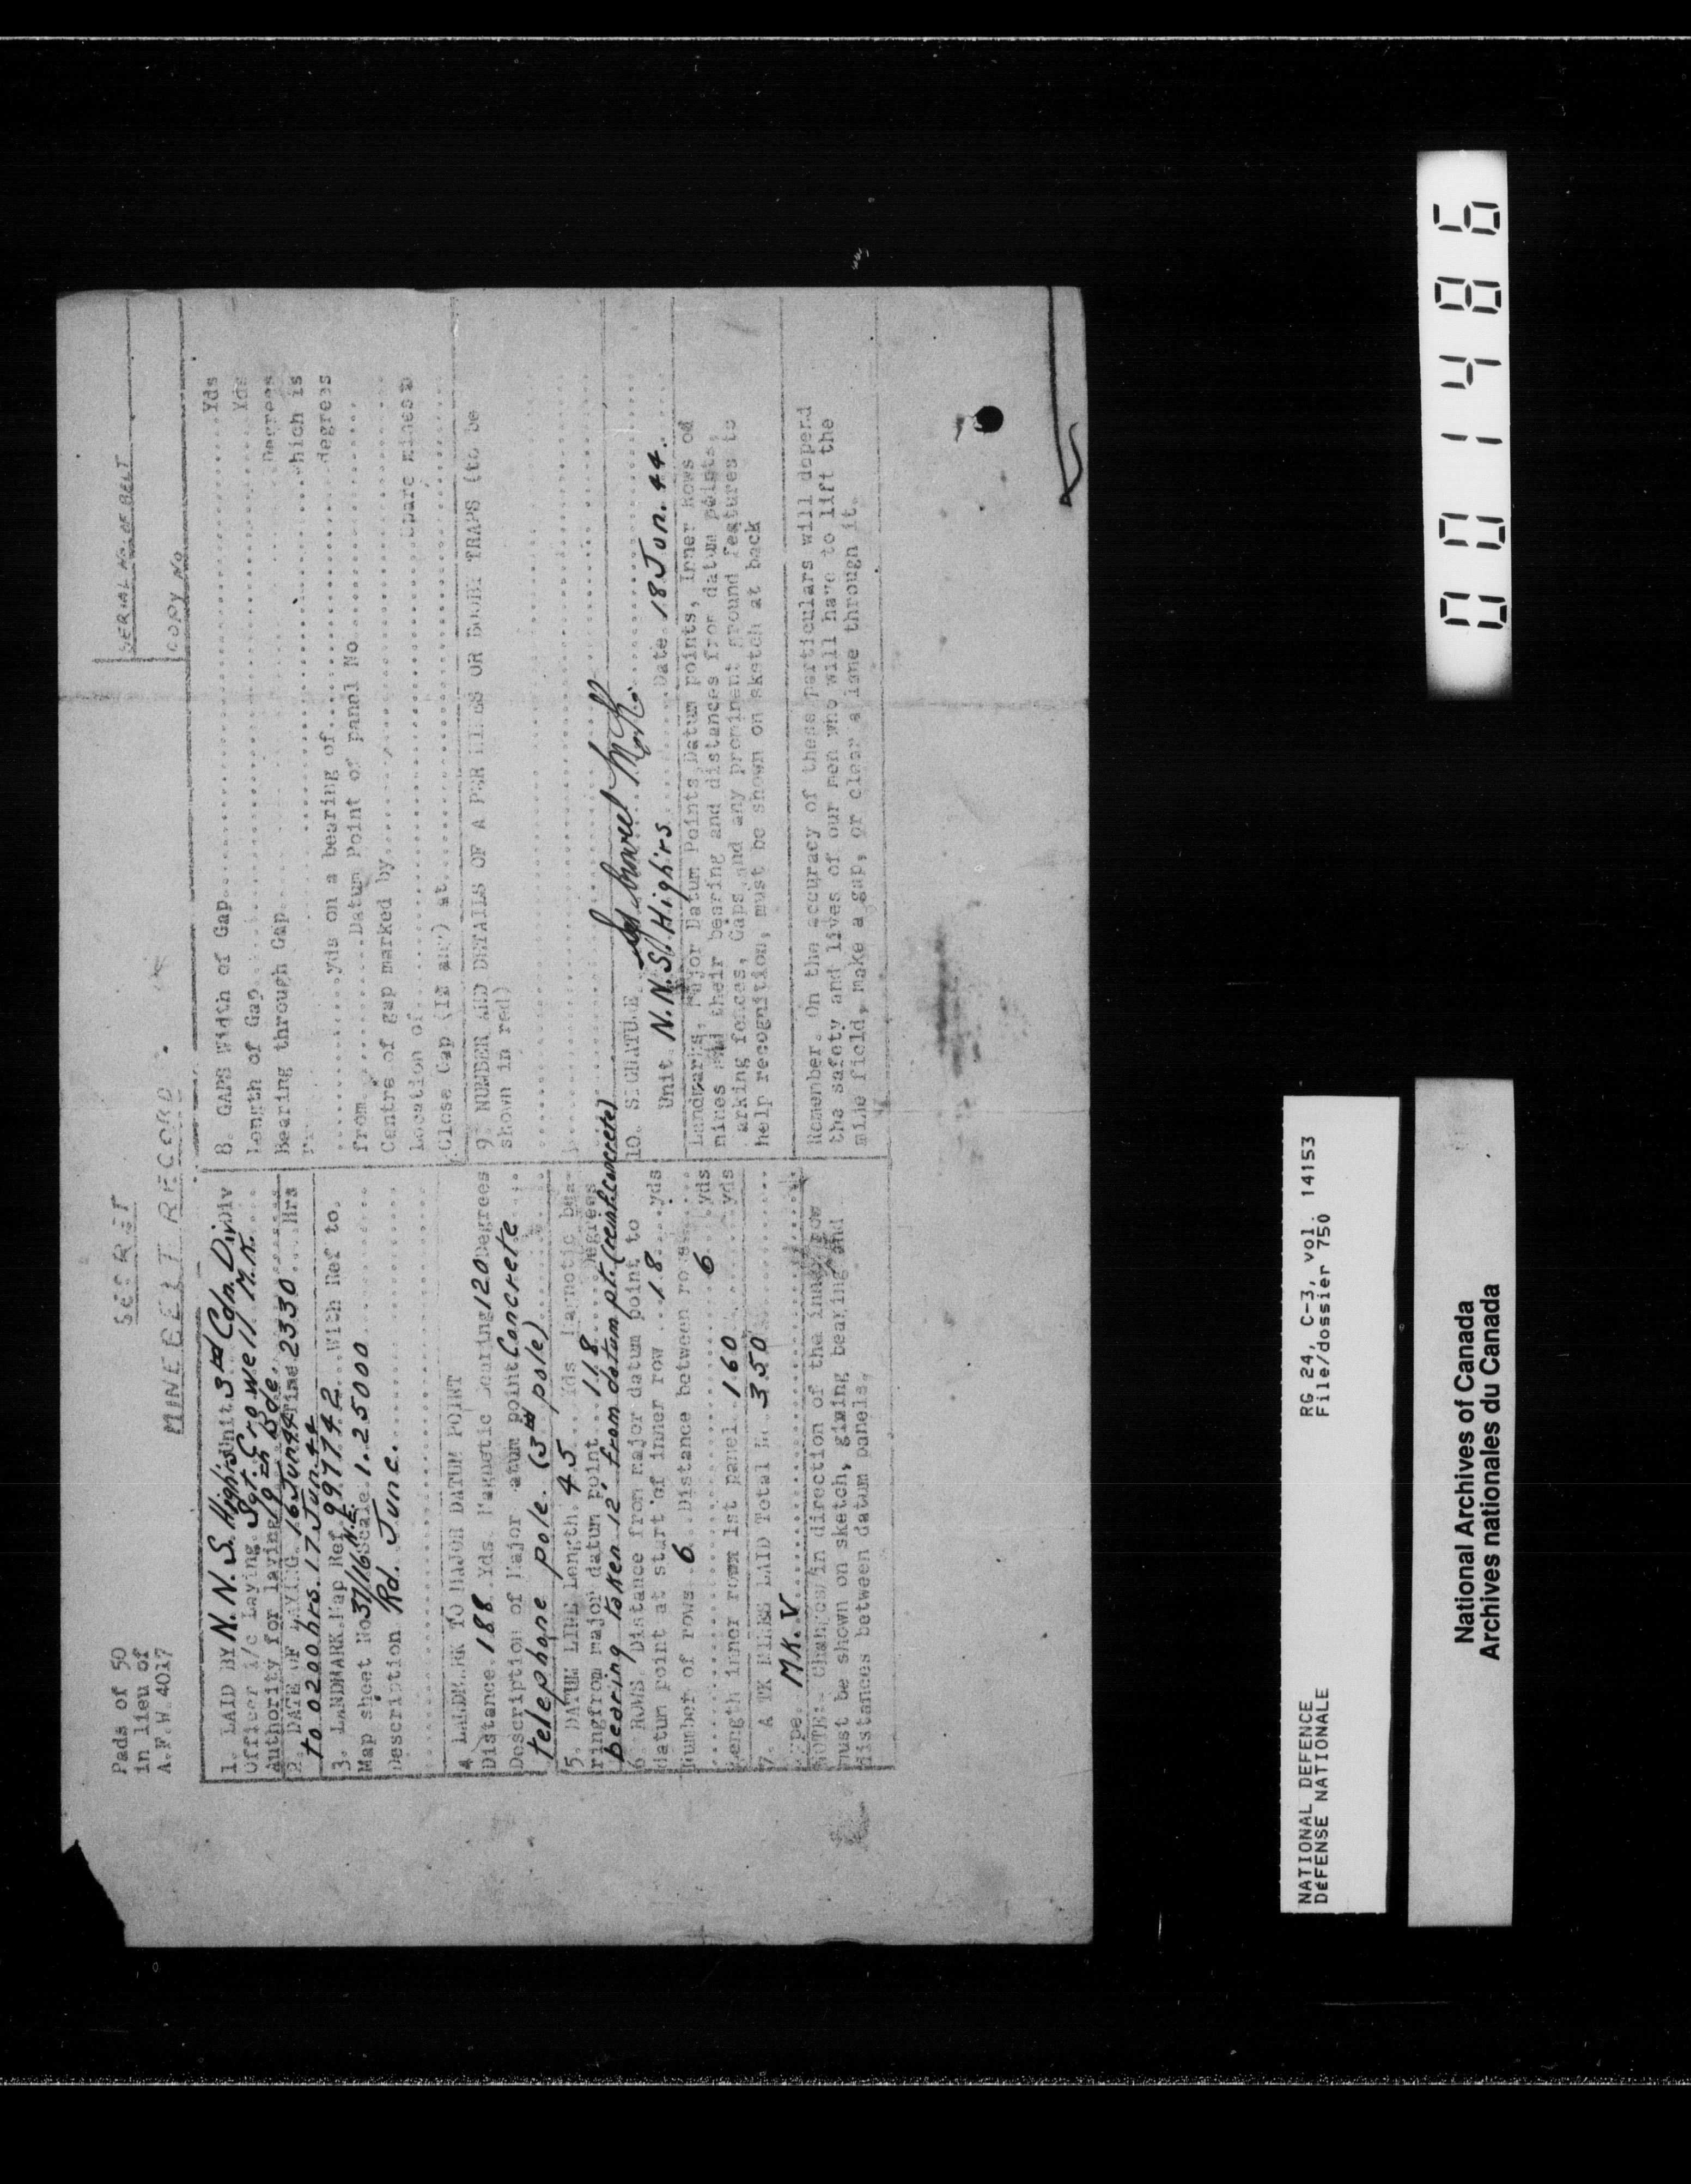 Pads of 50
in lieu of
A.F.W. 4017
SECRET
MINE BELT RECORD.
SERIAL No. OF BELT
COPY No
1. LAID BY N.N.S. Highrs Unit 3rd Cdn. Div Div
Officer i/c Laying. Sgt. Crowell M.R.
Authority for laying 9th Bde.
2. DATE OF LAYING. 16 Jun 44 Time 2330 Hrs
to 0200 hrs. 17 Jun. 44
3. LANDMARK. Map Ref. 997742 With Ref to.
Map sheet No 37/16 N.E. Scale 1.25000
Description Rd. Junc.
4 LANDMARK TO MAJOR DATUM POINT
Distance. 188 Yds. Magnetic bearing 120 Degrees
Description of Major datum point Concrete
telephone pole. (3rd pole)
5. DATUM LINE Length. 45 Yds Magnetic bea-
ring from major datum point 118 Degrees
bearing taken 12' from datum pt. (reinf. concrete)
6. ROWS, Distance from major datum point to
datum point at start of inner row 18 yds
Number of rows 6. Distance between rows
6 yds
Length inner row 1st panel 160 yds
7. A TK MINES LAID Total 350
Type. MK. V
NOTE: Changes in direction of the inner row
must be shown on sketch, giving bearing and
distances between datum panels.
8. GAPS Width of Gap Yds
Length of Gap Yds
Bearing through Gap Degrees
which is
yds on a bearing of degrees
from Datum Point of panel No
Centre of gap marked by
Location of spare mines to
Close Gap (if any) at
9. NUMBER AND DETAILS OF A PER MINES OR BOOBY TRAPS (to be
shown in red)
10. SIGNATURE Sgt Crowell M.R.
Unit N.N.S. Highrs Date 18 Jun. 44.
Landmarks, Major Datum Points, Datum points, Inner Rows of
mines and their bearing and distances from datum points,
marking fences, Gaps and any prominent ground features to
help recognition, must be shown on sketch at back
Remember. On the accuracy of these particulars will depend
the safety and lives of our men who will have to lift the
mine field, make a gap, or clear a lane through it.
NATIONAL DEFENCE
DÉFENSE NATIONALE
RG 24, C-3, vol. 14153
File/dossier 750
National Archives of Canada
Archives nationales du Canada
001486